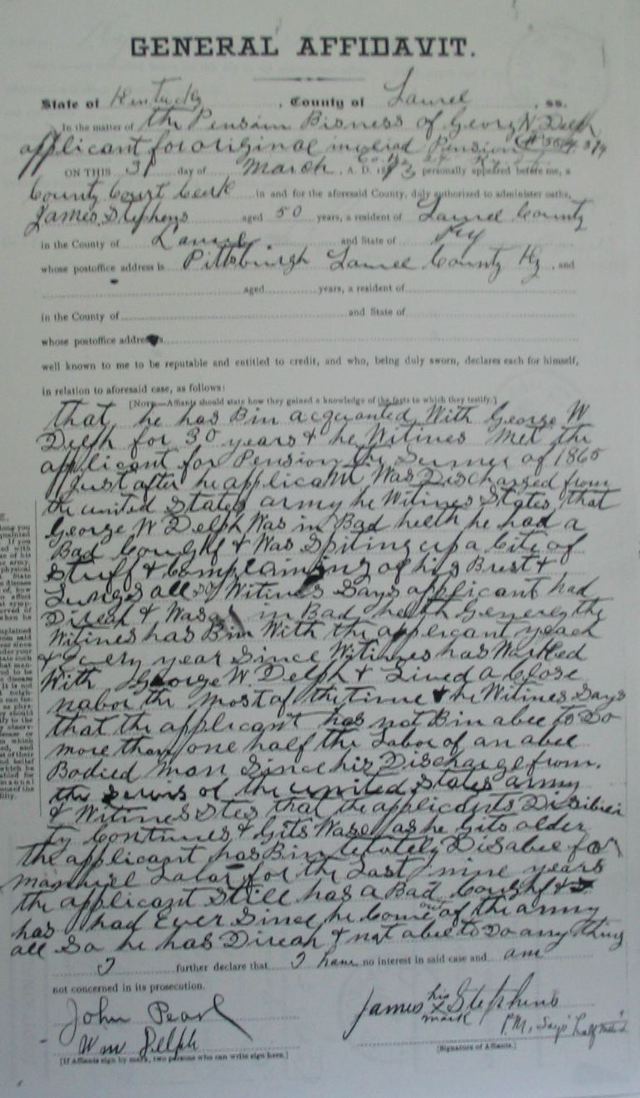 GENERAL AFFIDAVIT.
State of Kentucky, County of Laurel, ss.
In the matter of the Pension Bisness of George W Delph
applicant for original invalid Pension
ON THIS 31 day of March, A. D. 1893 personally appeared before me, a
County Court Cerk in and for the aforesaid County, duly authorized to administer oaths,
James Stephens aged 50 years, a resident of Laurel County
in the County of Laurel and State of Ky
whose postoffice address is Pittsburgh Laurel County Ky, and
aged years, a resident of
in the County of and State of
whose postoffice address
well known to me to be reputable and entitled to credit, and who, being duly sworn, declares each for himself,
in relation to aforesaid case, as follows:
[Note—Affiants should state how they gained a knowledge of the facts to which they testify.]
that he has Bin acquanted With George W
Delph for 30 years & he Witines Met the
applicant for Pension the Sumer of 1865
Just after he applicant Was Discharged from
the united States army he Witines States that
George W Delph Was in Bad helth he had a
Bad Cought & Was Spiting up a bite of
Stuff & Complaining of his Brest &
Lungs all so Witines Says applicant had
Direah & Was in Bad helth Generly the
Witines has Bin With the applicant yeach
& Every year Since Witines has Worked
With George W. Delph & Lived a Close
nabor the Most of the time & he Witines Says
that the applicant has not Bin abee to Do
more than one half the Labor of an abee
Bodied Man Since his Discharge from
the of the united States army
& Witines that the applicants Disibiei
ty Continues & Gits Wase as he Gits older
the applicant has Bin Disabee for
manuel Labor for the Last nine years
the applicant Still has a Bad Cought &
has had Ever Since he Come out of the army
all So he has Direah & not abee to Do any thing
I further declare that I have no interest in said case and am
not concerned in its prosecution.
John Pearl
James his X mark Stephens
Wm Delph
P.M. Says
[If Affiants sign by mark, two persons who can write sign here.]
[Signature of Affiants.]